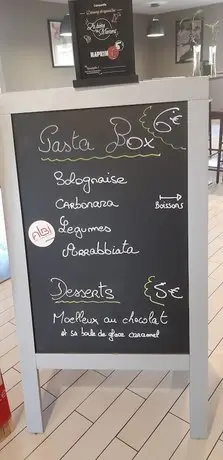 Pasta Box 6€
Bolognaise
Carbonara
Boissons
Légumes
Arrabbiata
Desserts 5€
Moelleux au chocolat
et sa boule de glace caramel